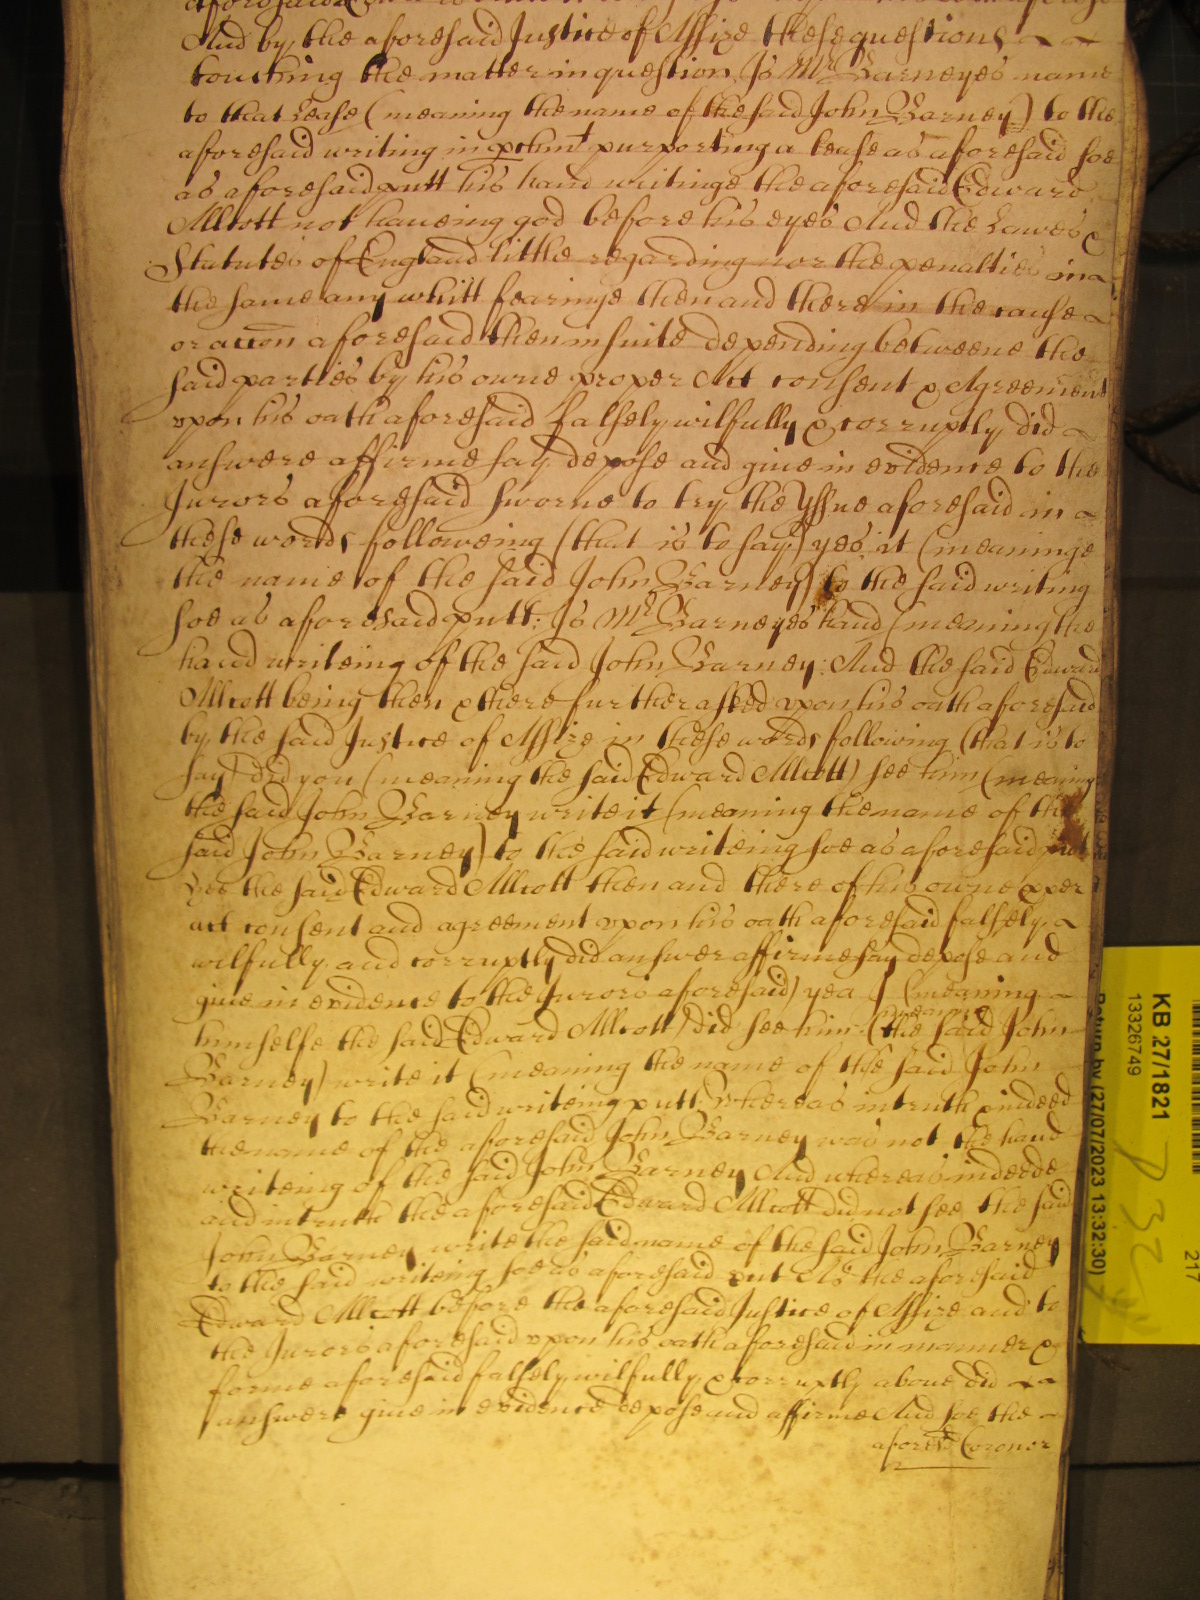 And by the aforesaid Justice of Assize these questions
touching the matter in question Is Mr Barneyes name
to that Lease (meaning the name of the said John Barney) to the
aforesaid writing in pchmt purporting a lease as aforesaid soe
as aforesaid putt his hand writinge the aforesaid Edward
Allcott not haueing god before his eyes And the Lawes &
Statutes of England little regarding nor the penalties in
the same any whitt fearinge then and there in the cause
or accon aforesaid then in suite depending betweene the
said parties by his owne proper Act consent & Agreement
vpon his oath aforesaid falsely wilfully & corruptly did
answere affirme say depose and giue in evidence to the
Jurors aforesaid sworne to try the Yssue aforesaid in
these words followeing (that is to say) yes it (meaninge
the name of the said John Barney) to the said writing
soe as aforesaid putt: Is Mr Barneyes hand (meaning the
hand writeing of the said John Barney: And the said Edward
Allcott being then & there further asked vpon his oath aforesaid
by the said Justice of Assize in these words following (that is to
say) did you (meaning the said Edward Allcott) see him (meaning
the said John Barney write it (meaning the name of the
said John Barney) to the said writeing soe as aforesaid putt
hee the said Edward Allcott then and there of his owne pper
act consent and agreement vpon his oath aforesaid falsely
wilfully and corruptly did answer affirme say depose and
giue in evidence to the Jurors aforesaid) yea I (meaning
himselfe the said Edward Allcott) did see him (meaning the said John
Barney) write it (meaning the name of the said John
Barney to the said writeing putt: Whereas in truth & indeed
the name of the aforesaid John Barney was not the hand
writeing of the said John Barney And whereas indeede
and in truth the aforesaid Edward Allcott did not see the said
John Barney write the said name of the said John Barney
to the said writeing soe as aforesaid put As the aforesaid
Edward Allcott before the aforesaid Justice of Assize and to
the Jurors aforesaid vpon his oath aforesaid in manner &
forme aforesaid falsely wilfully & corruptly aboue did
answere giue in evidence depose and affirme And soe the
aforesd Coroner
KB 27/1821
13326749
Return by (27/07/2023 13:32:30)
217